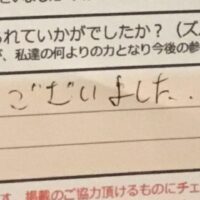 られていかがでしたか？（ズ
が、私達の何よりの力となり今後の参
ございました..
す。掲載のご協力頂けるものにチェ